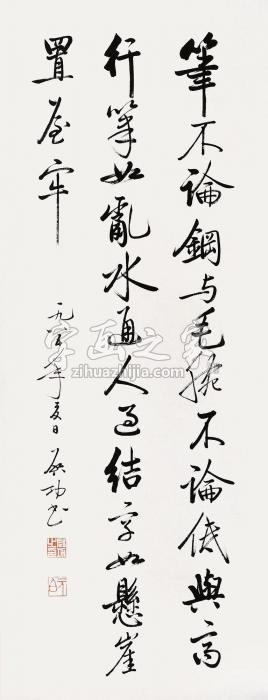 筆不論鋼与毛腕不論低與高
行筆如亂水通人過結字如懸崖
置屋牢
一九八五年夏日 启功书
字画之家
zihuazhijia.com